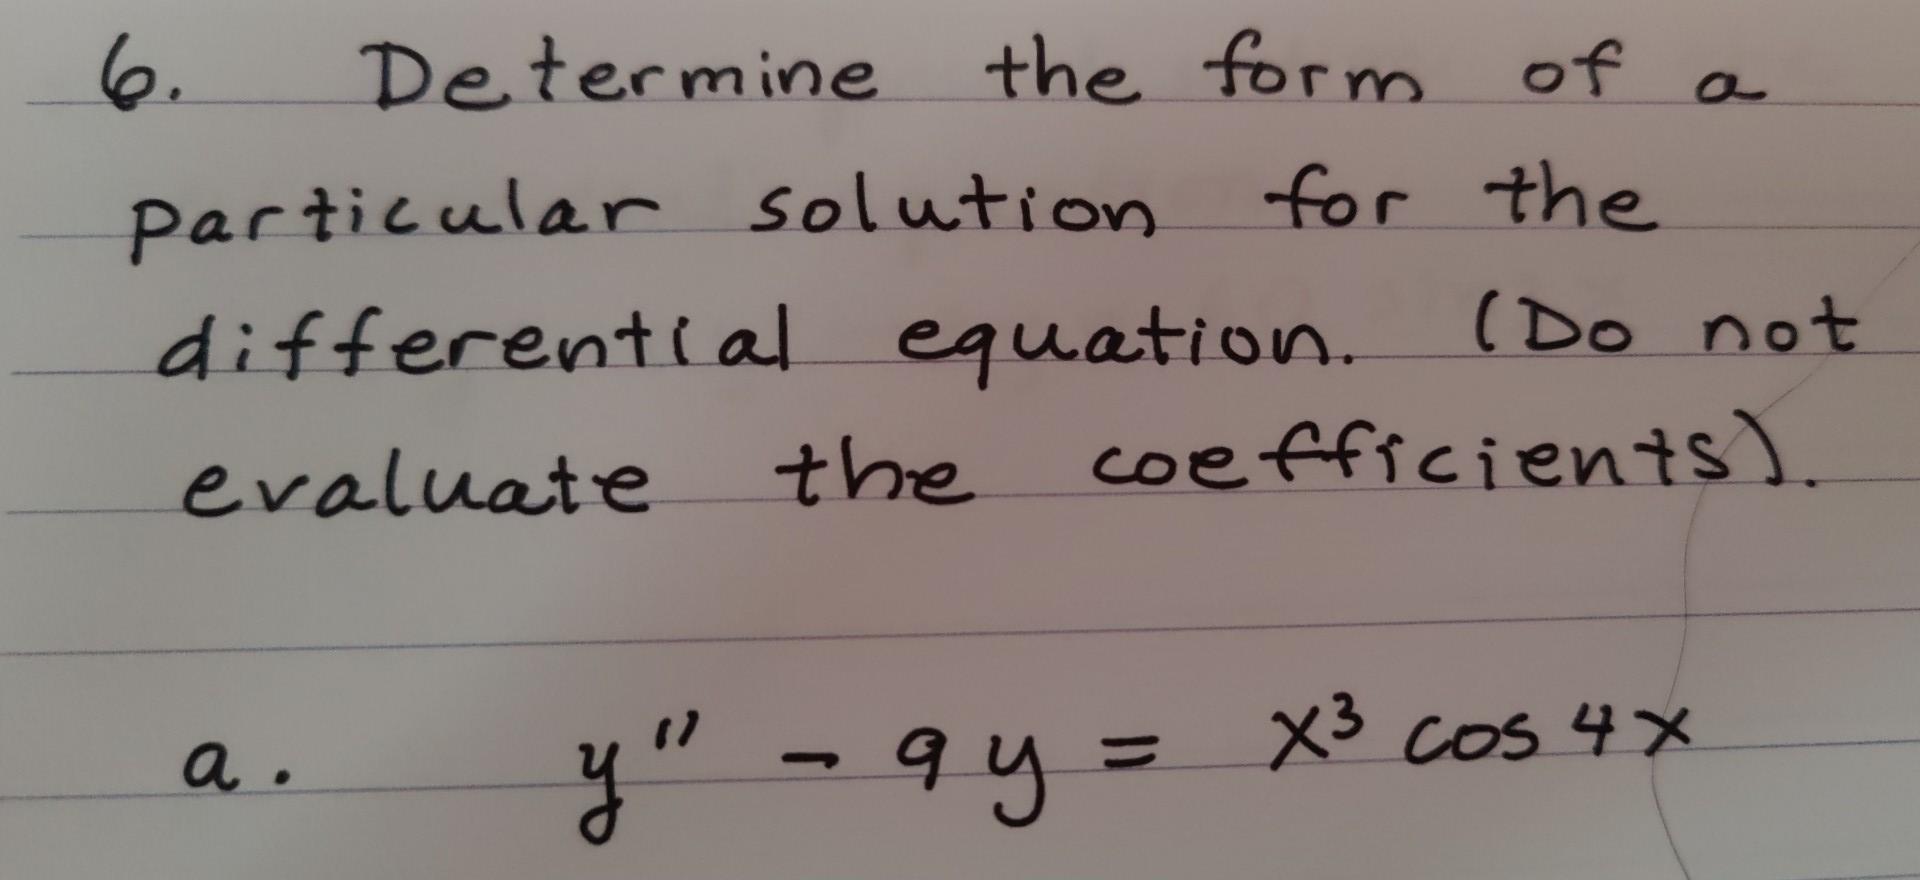 6. Determine the form of a
particular solution for the
differential equation. (Do not
evaluate the coefficients).
a. y'' - 9y = x³ cos 4x